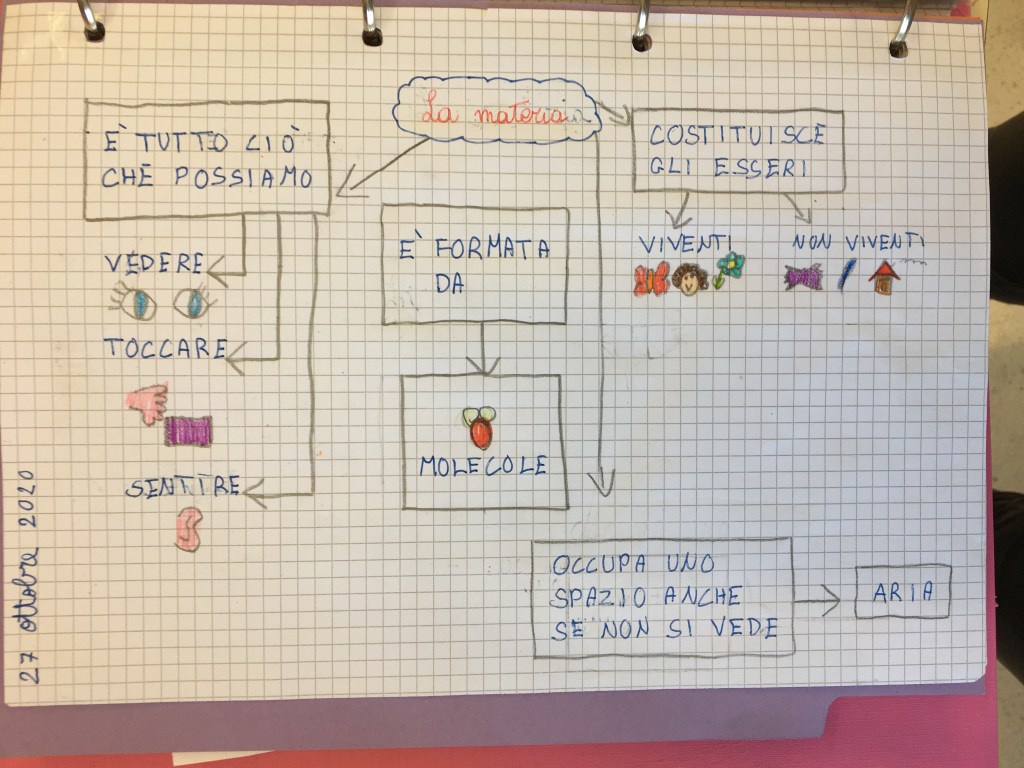 La materia
È TUTTO CIÒ
CHE POSSIAMO
VEDERE
TOCCARE
SENTIRE
È FORMATA
DA
MOLECOLE
COSTITUISCE
GLI ESSERI
VIVENTI
NON VIVENTI
OCCUPA UNO
SPAZIO ANCHE
SE NON SI VEDE
ARIA
27 ottobre 2020